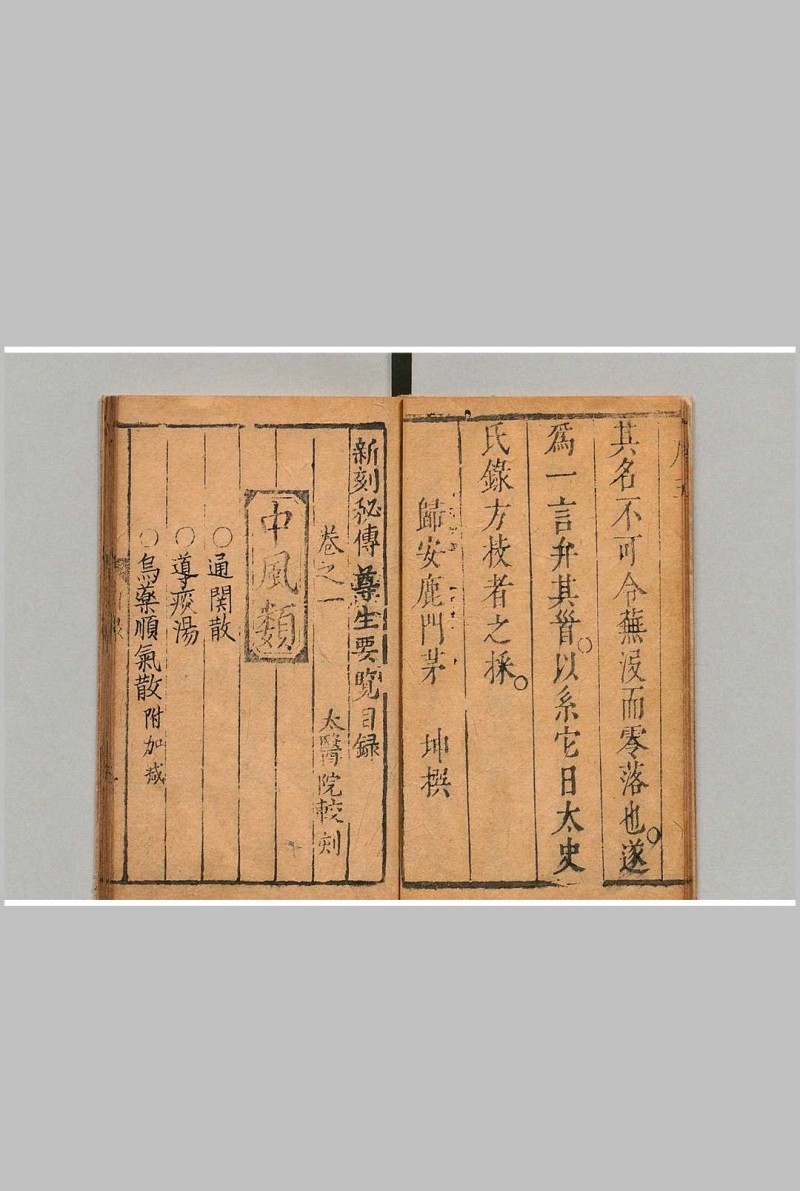 其名不可令蕪没而零落也遂
爲一言弁其首以系它日太史
氏錄方技者之採
歸安鹿門茅 坤撰
新刻秘傳尊生要覽目録
卷之一 太醫院較刻
中風類
○通関散
○導痰湯
○烏藥順氣散附加减